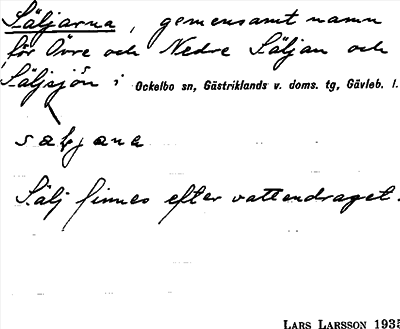 Säljarna, gemensamt namn
för Övre och Nedre Säljan och
Säljsjön i Ockelbo sn, Gästriklands v. doms. tg, Gävleb. l.
Sälj finnes efter vattendraget.
LARS LARSSON 1935